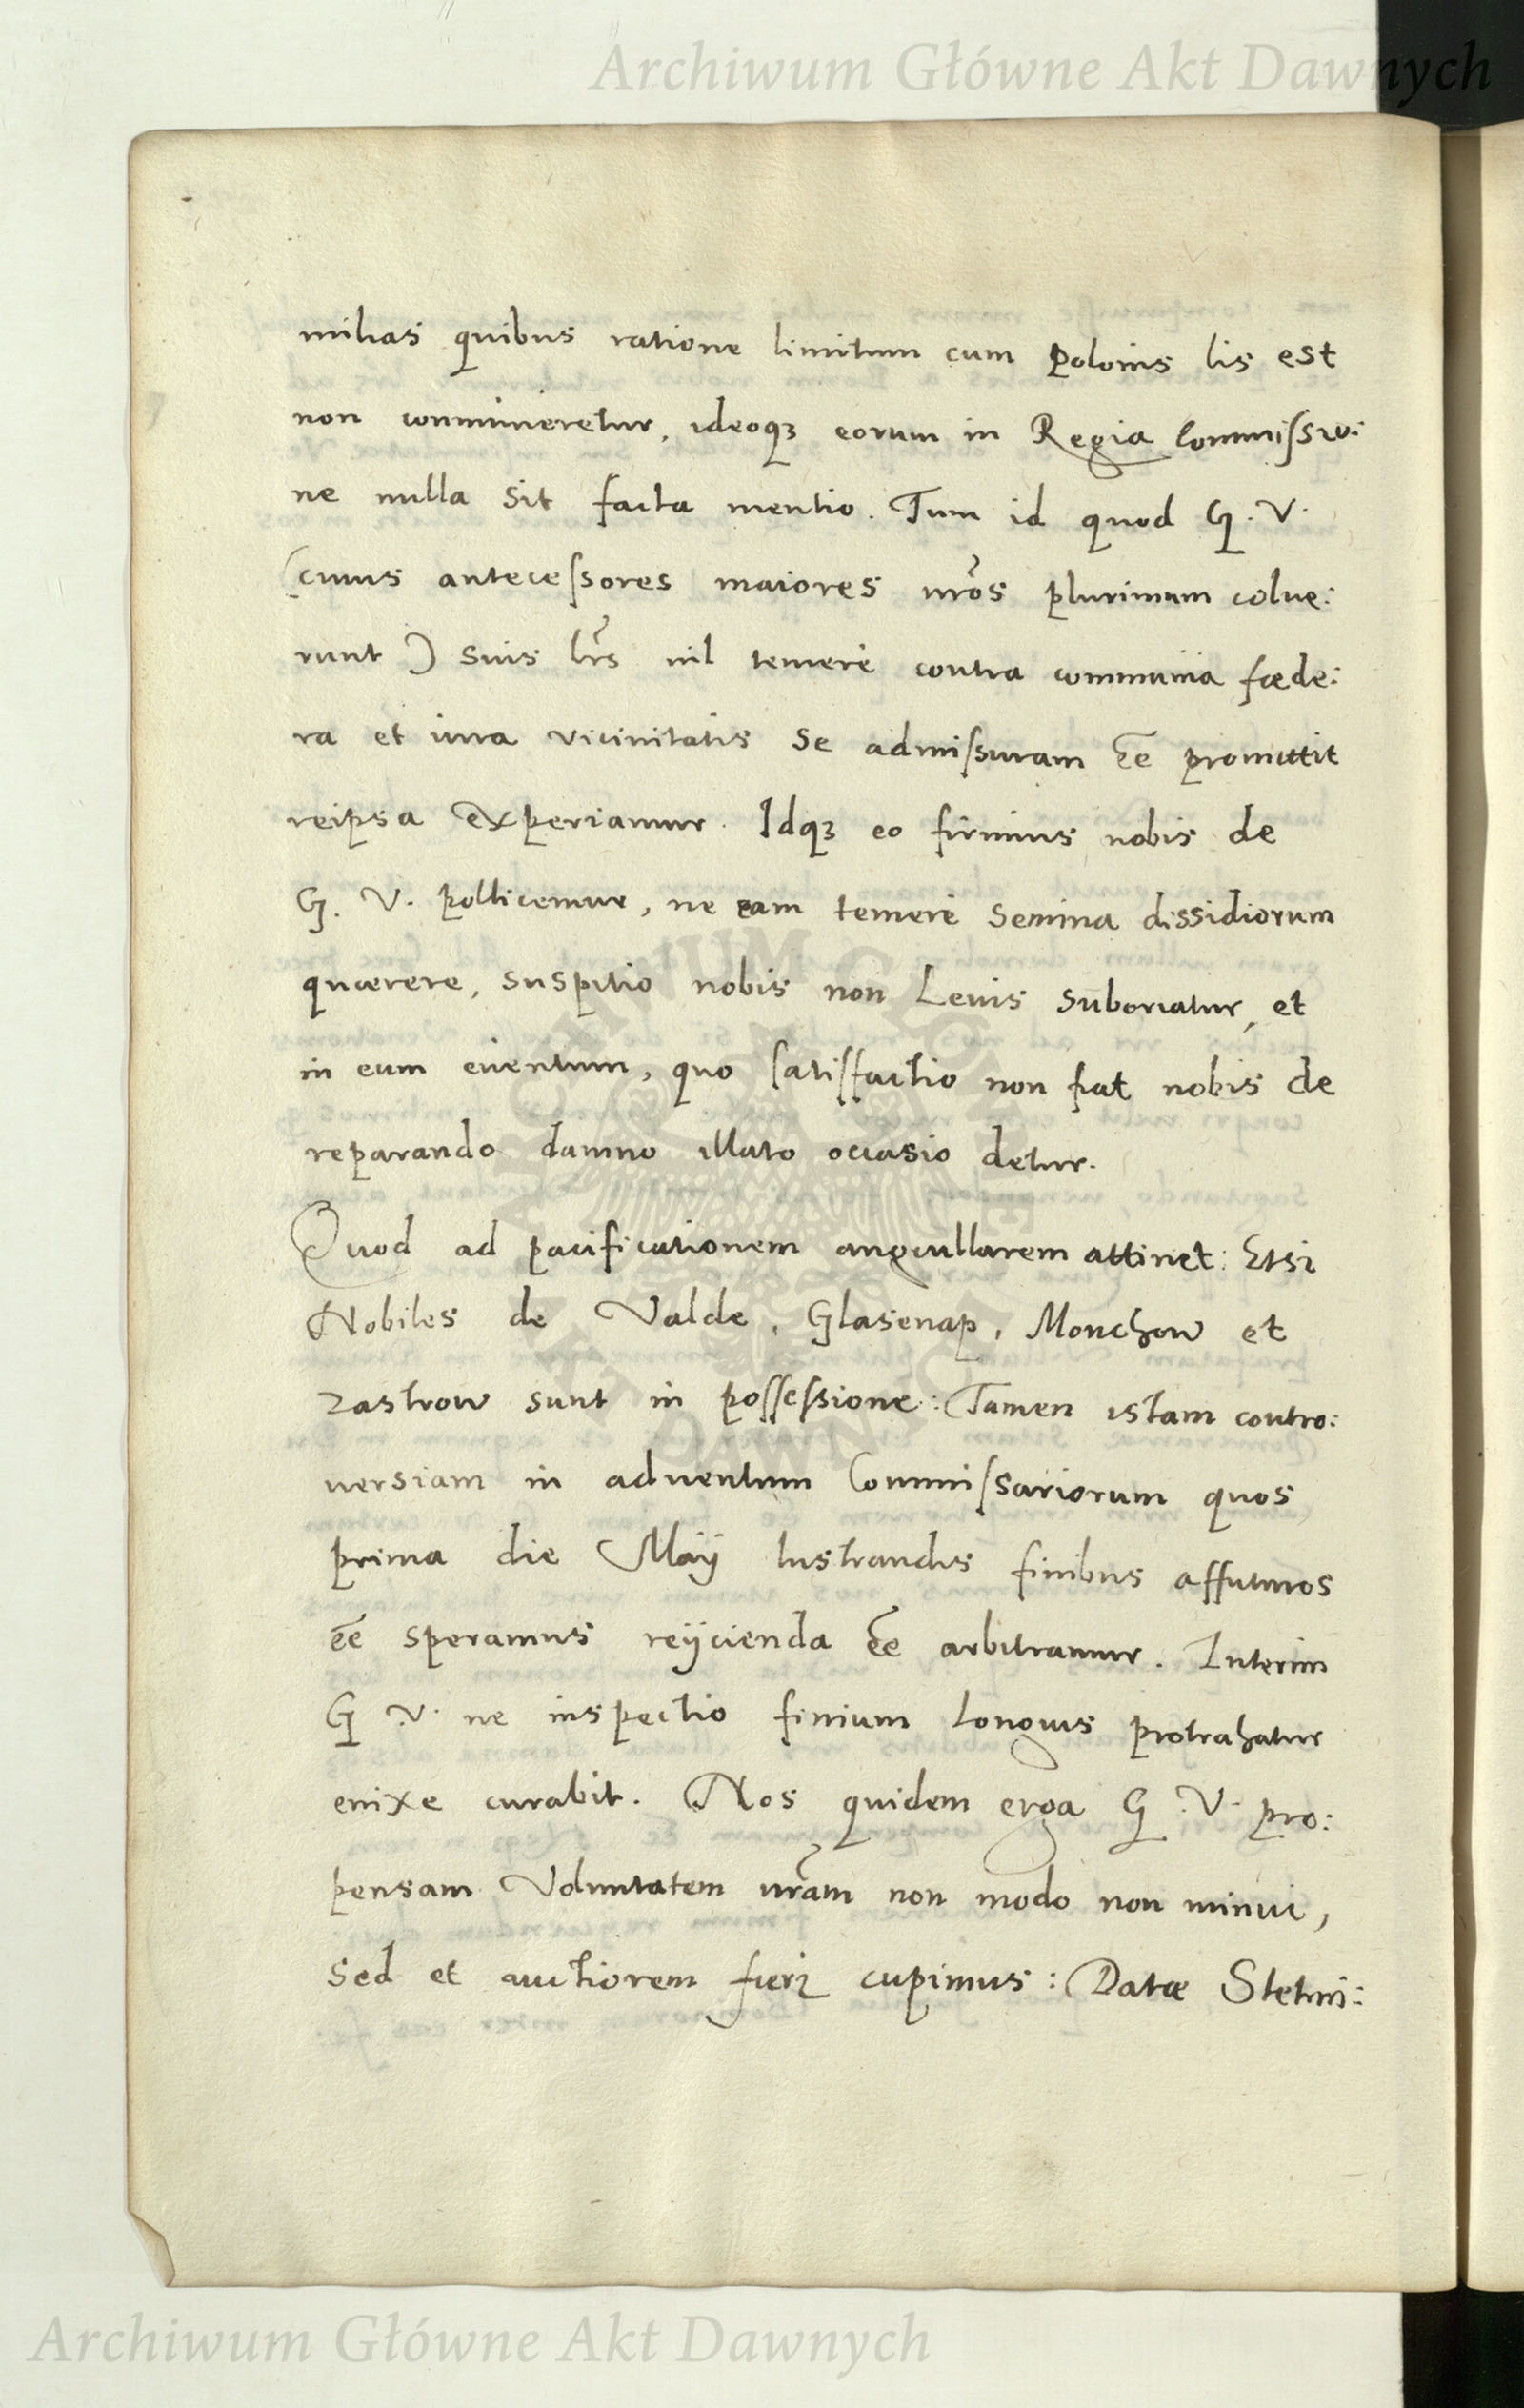 Archiwum Główne Akt Dawnych
milias quibus ratione limitum cum Polonis lis est
non connumeretur, ideoq3 eorum in Regia Commissio:
ne nulla sit facta mentio. Tum id quod G. V.
(cuius antecessores maiores nr̃os plurimum colue:
runt) suis lr̃is nil temerè contra communia fœde:
ra et iura vicinitatis se admissuram eẽ promittit
reipsa experiamur. Idq3 eo firmius nobis de
G. V. pollicemur, ne eam temerè semina dissidiorum
quærere, suspitio nobis non Levis suboriatur, et
in eum euentum, quo satisfactio non fiat nobis de
reparando damno illato occasio detur.
Quod ad pacificationem angcullarem attinet: Etsi
Nobiles de Valde, Glasenap, Monchow et
Zastrow sunt in possessione: Tamen istam contro:
uersiam in aduentum Commissariorum quos
prima die Maÿ lustrandis finibus affuturos
eẽ speramus reÿcienda eẽ arbitramur. Interim
G. V. ne inspectio finium longius protrahatur
enixe curabit. Nos quidem erga G. V. pro:
pensam Voluntatem nr̃am non modo non minui,
sed et auctiorem fieri cupimus: Datæ Stetini:
ARCHIWUM GŁÓWNE AKT DAWNYCH
Archiwum Główne Akt Dawnych